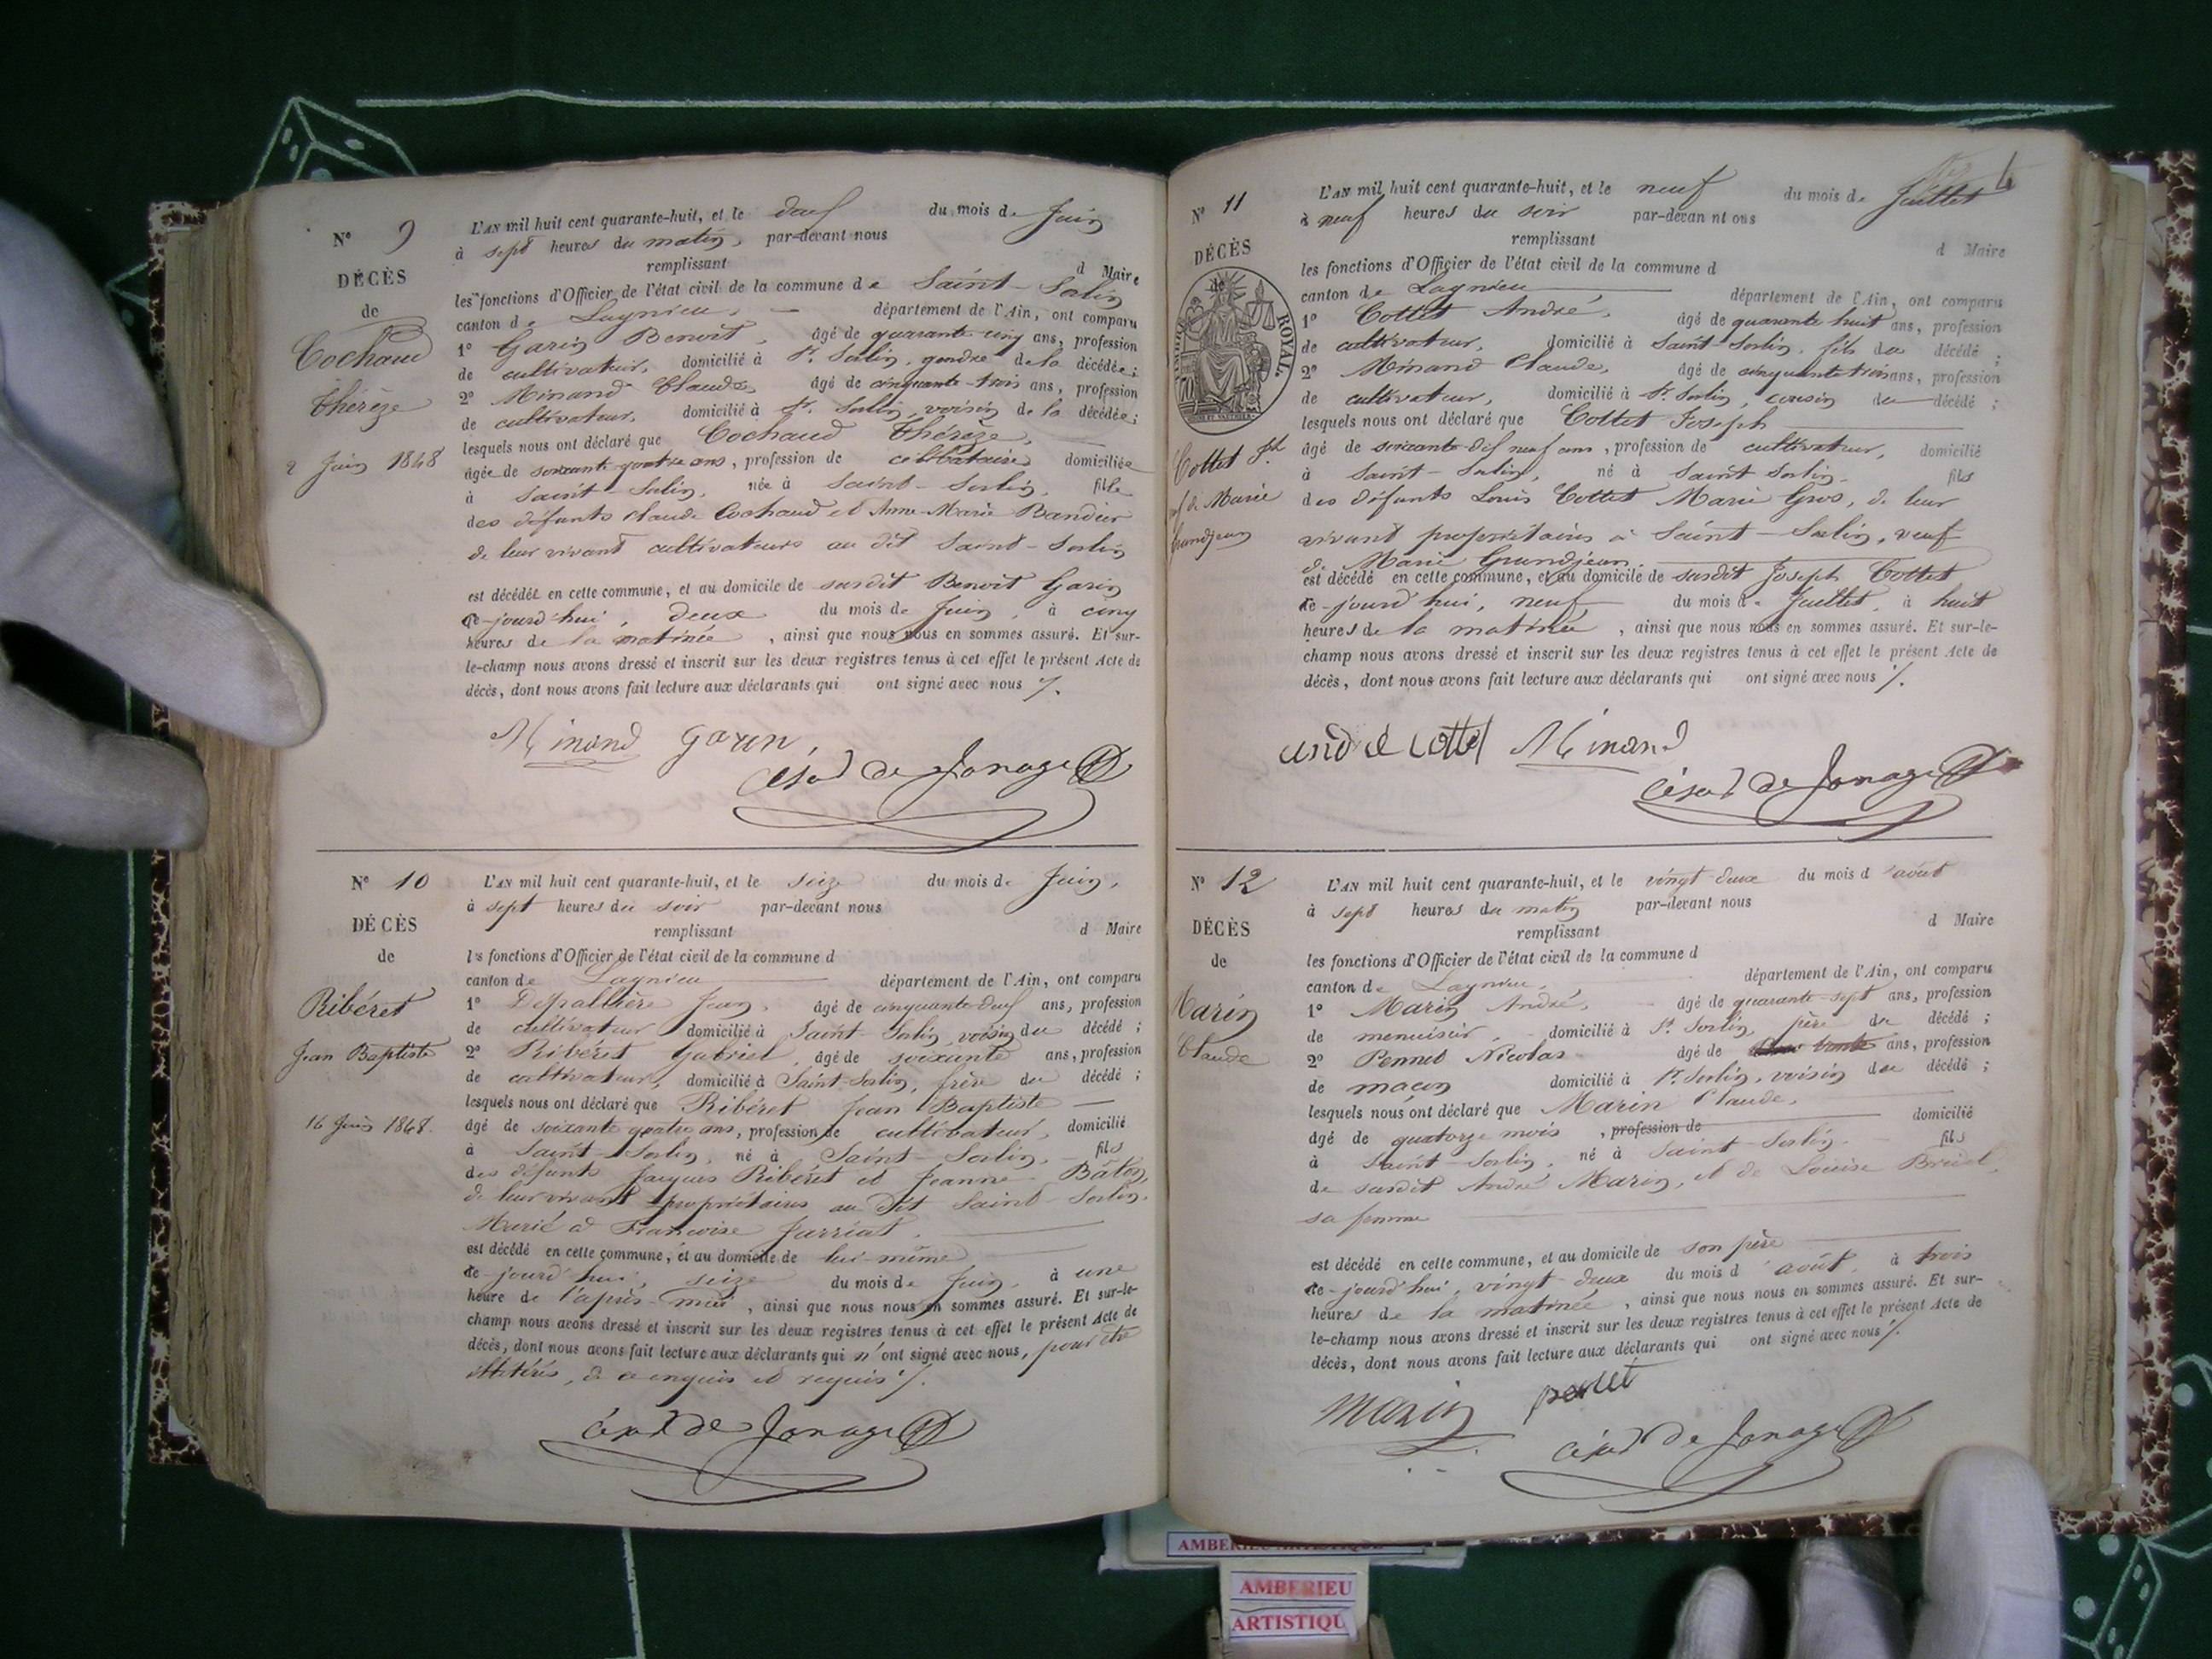 N° 9
DÉCÈS
de
Cochaud
Thérèze
2 Juin 1848
L'AN mil huit cent quarante-huit, et le deux du mois de Juin
à sept heures du matin, par-devant nous
remplissant d Maire
les fonctions d'Officier de l'état civil de la commune de Saint-Sorlin
canton de Lagnieu, département de l'Ain, ont comparu
1° Garin Benoit, âgé de quarante cinq ans, profession
de cultivateur, domicilié à St. Sorlin, gendre de la décédée;
2° Minand Claude, âgé de cinquante-trois ans, profession
de cultivateur, domicilié à St. Sorlin, voisin de la décédée;
lesquels nous ont déclaré que Cochaud Thérèze,
âgée de soixante quatre ans, profession de célibataire domiciliée
à Saint-Sorlin, née à Saint-Sorlin, fille
des défunts Claude Cochaud et Anne-Marie Bandier
de leur vivant cultivateurs au dit Saint-Sorlin
est décédée en cette commune, et au domicile de susdit Benoit Garin
ce-jourd'hui, deux du mois de Juin, à cinq
heures de la matinée, ainsi que nous nous en sommes assuré. Et sur-
le-champ nous avons dressé et inscrit sur les deux registres tenus à cet effet le présent Acte de
décès, dont nous avons fait lecture aux déclarants qui ont signé avec nous ./.
Minand Garin,
César de Jonage
N° 10
DÉCÈS
de
Ribéret
Jean Baptiste
16 Juin 1848.
L'AN mil huit cent quarante-huit, et le seize du mois de Juin,
à sept heures du soir par-devant nous
remplissant d Maire
les fonctions d'Officier de l'état civil de la commune d
canton de Lagnieu département de l'Ain, ont comparu
1° Depallière Jean, âgé de cinquante-deux ans, profession
de cultivateur domicilié à Saint-Sorlin, voisin du décédé;
2° Ribéret Gabriel, âgé de soixante ans, profession
de cultivateur, domicilié à Saint-Sorlin, frère du décédé;
lesquels nous ont déclaré que Ribéret Jean Baptiste
âgé de soixante quatre ans, profession de cultivateur, domicilié
à Saint-Sorlin, né à Saint-Sorlin, fils
des défunts Jacques Ribéret et Jeanne Bâton,
de leur vivant propriétaires au dit Saint-Sorlin.
Marié à Françoise Jarriat.
est décédé en cette commune, et au domicile de lui-même
ce-jourd'hui, seize du mois de Juin, à une
heure de l'après-midi, ainsi que nous nous en sommes assuré. Et sur-le-
champ nous avons dressé et inscrit sur les deux registres tenus à cet effet le présent Acte de
décès, dont nous avons fait lecture aux déclarants qui n'ont signé avec nous, pour être
illitérés, de ce enquis et requis ./.
César de Jonage
4
N° 11
DÉCÈS
de
ROYAL.
70
Cottet Jh.
de Marie
Grandjean
L'AN mil huit cent quarante-huit, et le neuf du mois de Juillet
à neuf heures du soir par-devan nt ous
remplissant d Maire
les fonctions d'Officier de l'état civil de la commune d
canton de Lagnieu, département de l'Ain, ont comparu
1° Cottet André, âgé de quarante huit ans, profession
de cultivateur, domicilié à Saint-Sorlin, fils du décédé;
2° Minand Claude, âgé de cinquante trois ans, profession
de cultivateur, domicilié à St. Sorlin, cousin du décédé;
lesquels nous ont déclaré que Cottet Joseph
âgé de soixante-dix neuf ans, profession de cultivateur, domicilié
à Saint-Sorlin, né à Saint Sorlin. fils
des défunts Louis Cottet Marie Gros, de leur
vivant propriétaires à Saint-Sorlin, veuf
de Marie Grandjean.
est décédé en cette commune, et au domicile de susdit Joseph Cottet
ce-jourd'hui, neuf du mois de Juillet, à huit
heures de la matinée, ainsi que nous nous en sommes assuré. Et sur-le-
champ nous avons dressé et inscrit sur les deux registres tenus à cet effet le présent Acte de
décès, dont nous avons fait lecture aux déclarants qui ont signé avec nous ./.
andré cottet Minand
César de Jonage
N° 12
DÉCÈS
de
Marin
Claude
L'AN mil huit cent quarante-huit, et le vingt deux du mois d'août
à sept heures du matin par-devant nous
remplissant d Maire
les fonctions d'Officier de l'état civil de la commune d
canton de Lagnieu, département de l'Ain, ont comparu
1° Marin André, âgé de quarante-sept ans, profession
de menuisier, domicilié à St. Sorlin, père du décédé;
2° Pennet Nicolas âgé de ans, profession
de maçon domicilié à St. Sorlin, voisin du décédé;
lesquels nous ont déclaré que Marin Claude,
âgé de quatorze mois, profession de domicilié
à Saint-Sorlin, né à Saint-Sorlin. fils
de susdit André Marin, et de Louise Bruel,
sa femme
est décédé en cette commune, et au domicile de son père
ce-jourd'hui, vingt-deux du mois d'août, à trois
heures de la matinée, ainsi que nous nous en sommes assuré. Et sur-
le-champ nous avons dressé et inscrit sur les deux registres tenus à cet effet le présent Acte de
décès, dont nous avons fait lecture aux déclarants qui ont signé avec nous ./.
Marin pennet
César de Jonage
AMBERIEU ARTISTIQUE
AMBERIEU
ARTISTIQU